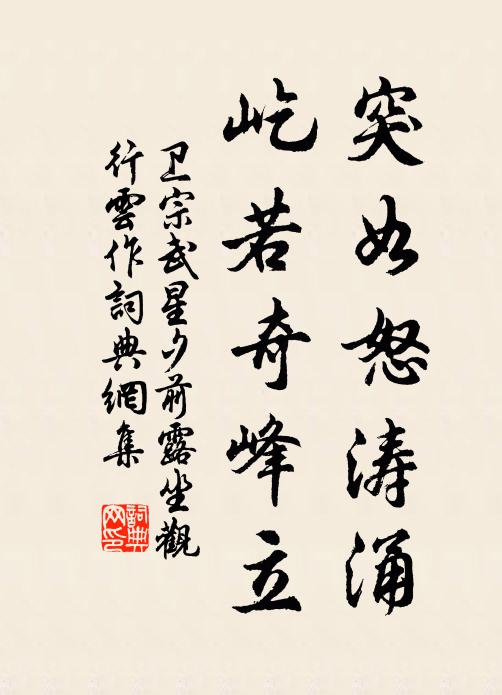 突如怒涛涌
屹若奇峰立
卫宗武星夕前露坐觀
行雲作詞典網集
詞典
网印